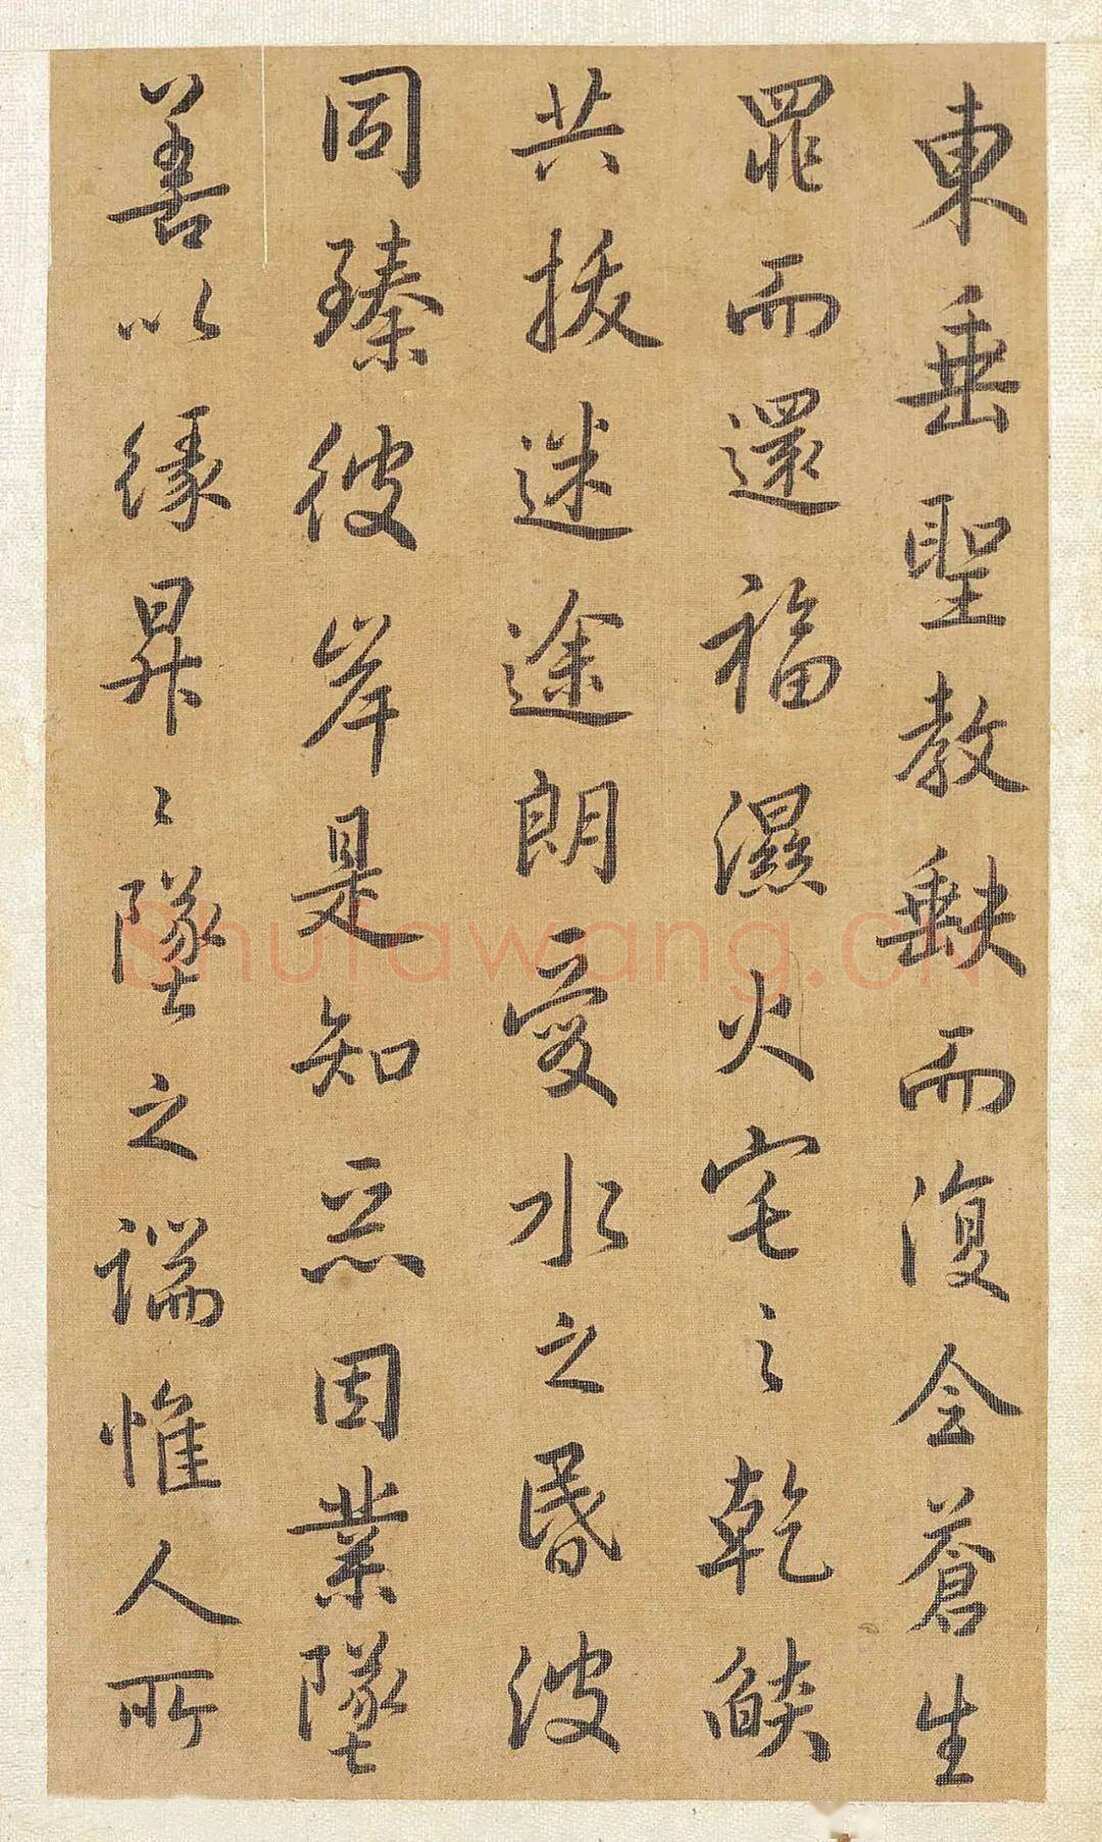 東垂聖教缺而復全蒼生
罪而還福濕火宅之乾燄
共拔迷途朗愛水之昬波
同臻彼岸是知惡因業墜
善以緣昇〻墜之端惟人所
Shufawang.CN